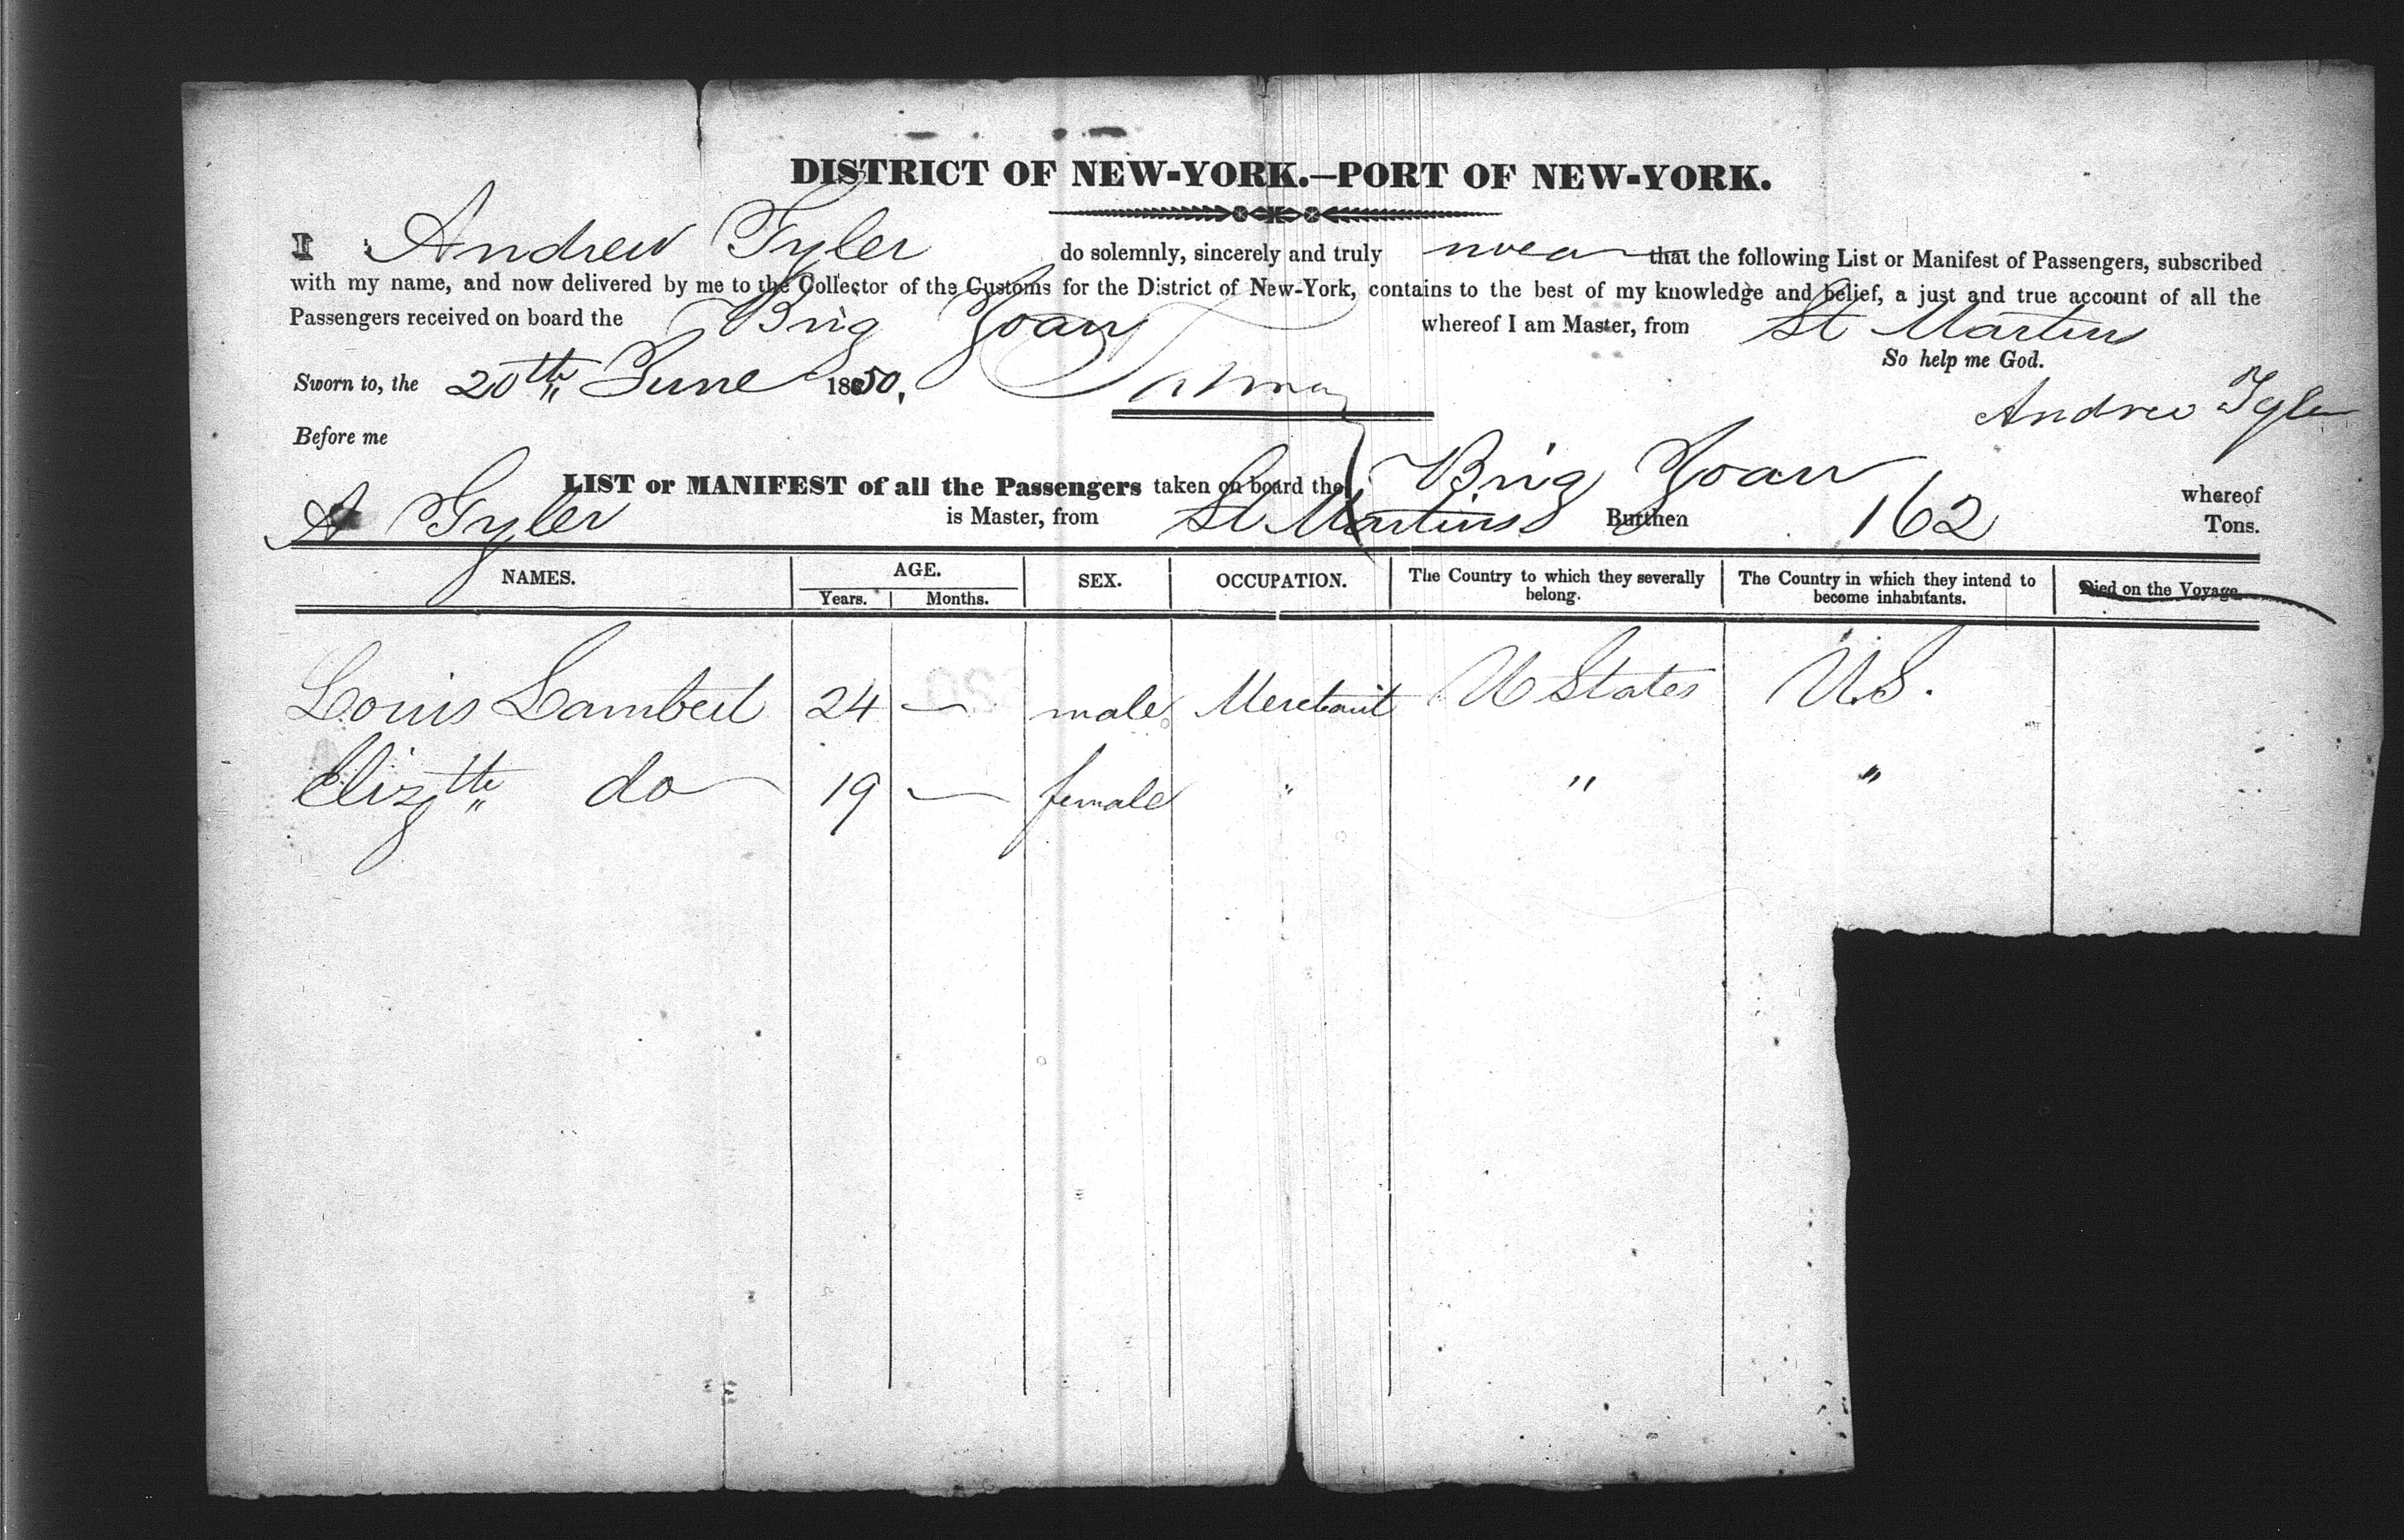 DISTRICT OF NEW-YORK.—PORT OF NEW-YORK.
I Andrew Tyler do solemnly, sincerely and truly that the following List or Manifest of Passengers, subscribed
with my name, and now delivered by me to the Collector of the Customs for the District of New-York, contains to the best of my knowledge and belief, a just and true account of all the
Passengers received on board the Brig Zoan whereof I am Master, from St Martins
So help me God.
Sworn to, the 20th June 1850.
Andrew Tyler
Before me
LIST or MANIFEST of all the Passengers taken on board the Brig Zoan whereof
A Tyler is Master, from St Martins Burthen 162 Tons.
NAMES. AGE. Years. Months. SEX. OCCUPATION. The Country to which they severally belong. The Country in which they intend to become inhabitants. Died on the Voyage.
Louis Lambert 24 — male Merchant U States U.S.
Elizth do 19 — female " " "